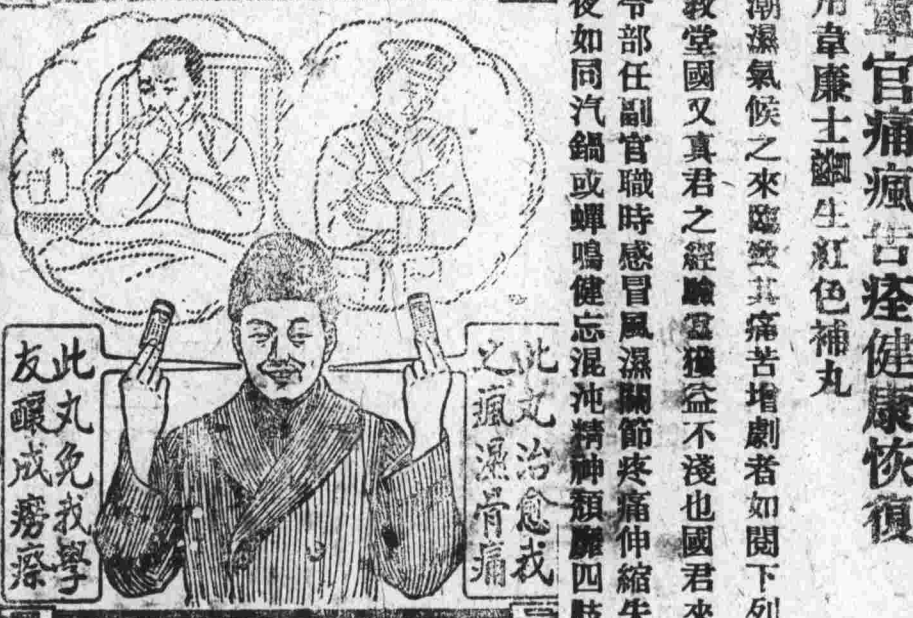 軍官痛瘋苦痊健康恢復
用韋廉士醫生紅色補丸
潮濕氣候之來臨致其痛苦增劇者如閱下列
教堂國又真君之經驗當獲益不淺也國君來
令部任副官職時感冒風濕關節疼痛伸縮失
後如同汽鍋或蟬鳴健忘混沌精神頹靡四肢
此丸治愈我
之瘋濕骨痛
此丸免我學
友釀成癆瘵